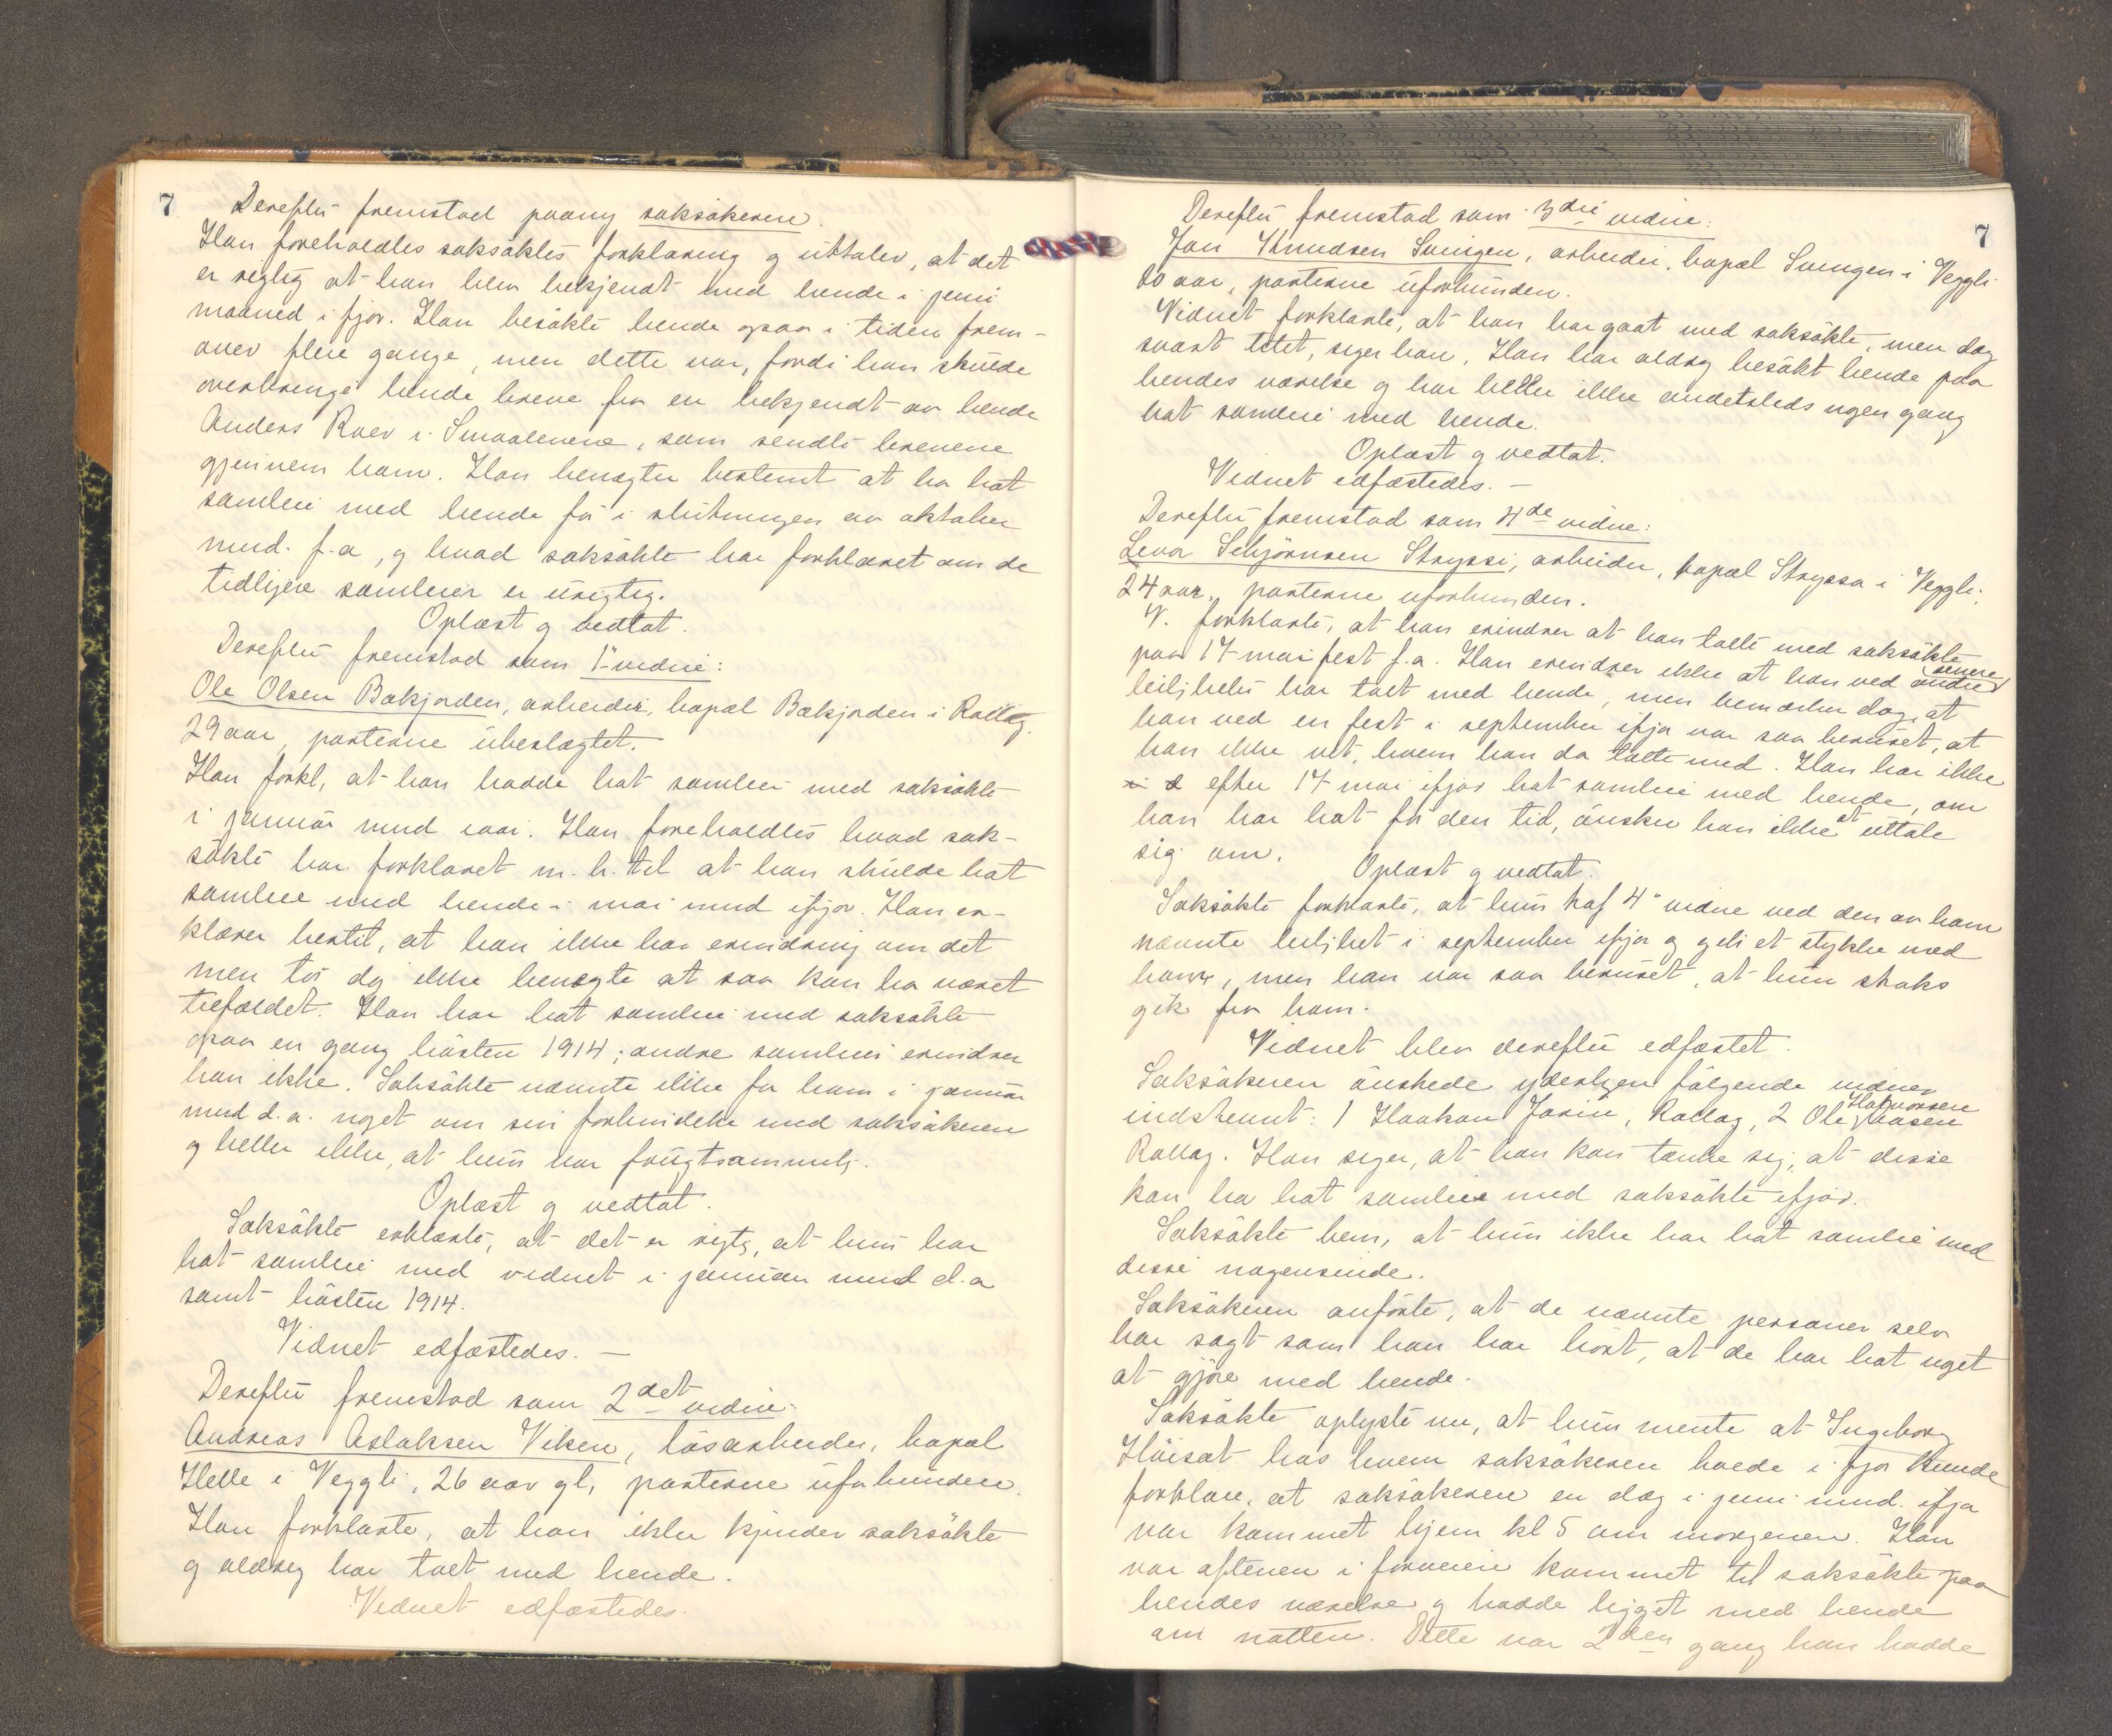 7
Derefter fremstod paany saksøkeren.
Han foreholdtes saksøktes forklaring og uttaler, at det
er rigtig at han blev bekjendt med hende i juni
maaned i fjor. Han besøkte hende ogsaa i tiden frem-
over flere gange, men dette var, fordi han skulde
overbringe hende breve fra en bekjendt av hende
Anders Ruev i Smaalenene, som sendte brevene
gjennem ham. Han benegter bestemt at ha hat
samleie med hende før i slutningen av oktober
mnd. f.a, og hvad saksøkte har forklaret om de
tidligere samleier er urigtig.
Oplæst og vedtat.
Derefter fremstod som 1ste vidne:
Ole Olsen Bakjorden, arbeider, bopæl Bakjorden i Rollag.
29 aar, parterne ubeslægtet.
Han forkl, at han hadde hat samleie med saksøkte
i januar mnd iaar. Han foreholdtes hvad sak-
søkte har forklaret m.h.til at han skulde hat
samleie med hende i mai mnd ifjor. Han er-
klærer hertil, at han ikke har erindring om det
men tør dog ikke benegte at saa kan ha været
tilfældet. Han har hat samleie med saksøkte
ogsaa en gang høsten 1914; andre samleier erindrer
han ikke. Saksøkte nævnte ikke for ham i januar
mnd d.a. noget om sin forbindelse med saksøkeren
og heller ikke, at hun var frugtsommelig.
Oplæst og vedtat.
Saksøkte erklærte, at det er rigtig, at hun har
hat samleie med vidnet i januar mnd d.a
samt høsten 1914.
Vidnet edfæstedes. —
Derefter fremstod som 2det vidne:
Andreas Aslaksen Viken, løsarbeider, bopæl
Helle i Veggli, 26 aar gl, parterne uforbunden.
Han forklarte, at han ikke kjender saksøkte
og aldrig har talt med hende.
Vidnet edfæstedes.
7
Derefter fremstod som 3die vidne:
Jon Knudsen Svingen, arbeider, bopæl Svingen i Veggli
20 aar, parterne uforbunden.
Vidnet forklarte, at han har gaat med saksøkte, men dog
svært litet, siger han. Han har aldrig besøkt hende paa
hendes værelse og har heller ikke andetsteds nogen gang
hat samleie med hende.
Oplæst og vedtat.
Vidnet edfæstedes. —
Derefter fremstod som 4de vidne:
Levor Schjørnsen Stryssi, arbeider, bopæl Stryssa i Veggli,
24 aar, parterne uforbunden.
V. forklarte, at han erindrer at han talte med saksøkte
paa 17 mai fest f.a. Han erindrer ikke at han ved andre senere
leiligheter har talt med hende, men bemærker dog, at
han ved en fest i september ifjor var saa beruset, at
han ikke vet, hvem han da talte med. Han har ikke
efter 17 mai ifjor hat samleie med hende, om
han har hat før den tid, ønsker han ikke at uttale
sig om.
Oplæst og vedtat.
Saksøkte forklarte, at hun traf 4de vidne ved den av ham
nævnte leilighet i september ifjor og gik et stykke med
ham, men han var saa beruset, at hun straks
gik fra ham.
Vidnet blev derefter edfæstet.
Saksøkeren ønskede yderligere følgende vidner
indstevnt: 1 Haakon Jorin, Rollag, 2 Ole Halvorsen Aasen
Rollag. Han siger, at han kan tænke sig, at disse
kan ha hat samleie med saksøkte ifjor.
Saksøkte bem, at hun ikke har hat samleie med
disse nogensinde.
Saksøkeren anførte, at de nævnte personer selv
har sagt som han har hørt, at de har hat noget
at gjøre med hende.
Saksøkte oplyste nu, at hun mente at Ingeborg
Høisæt hos hvem saksøkeren boede i fjor kunde
forklare, at saksøkeren en dag i juni mnd. ifjor
var kommet hjem kl 5 om morgenen. Han
var aftenen i forveien kommet til saksøkte paa
hendes værelse og hadde ligget med hende
om natten. Dette var 2den gang han hadde